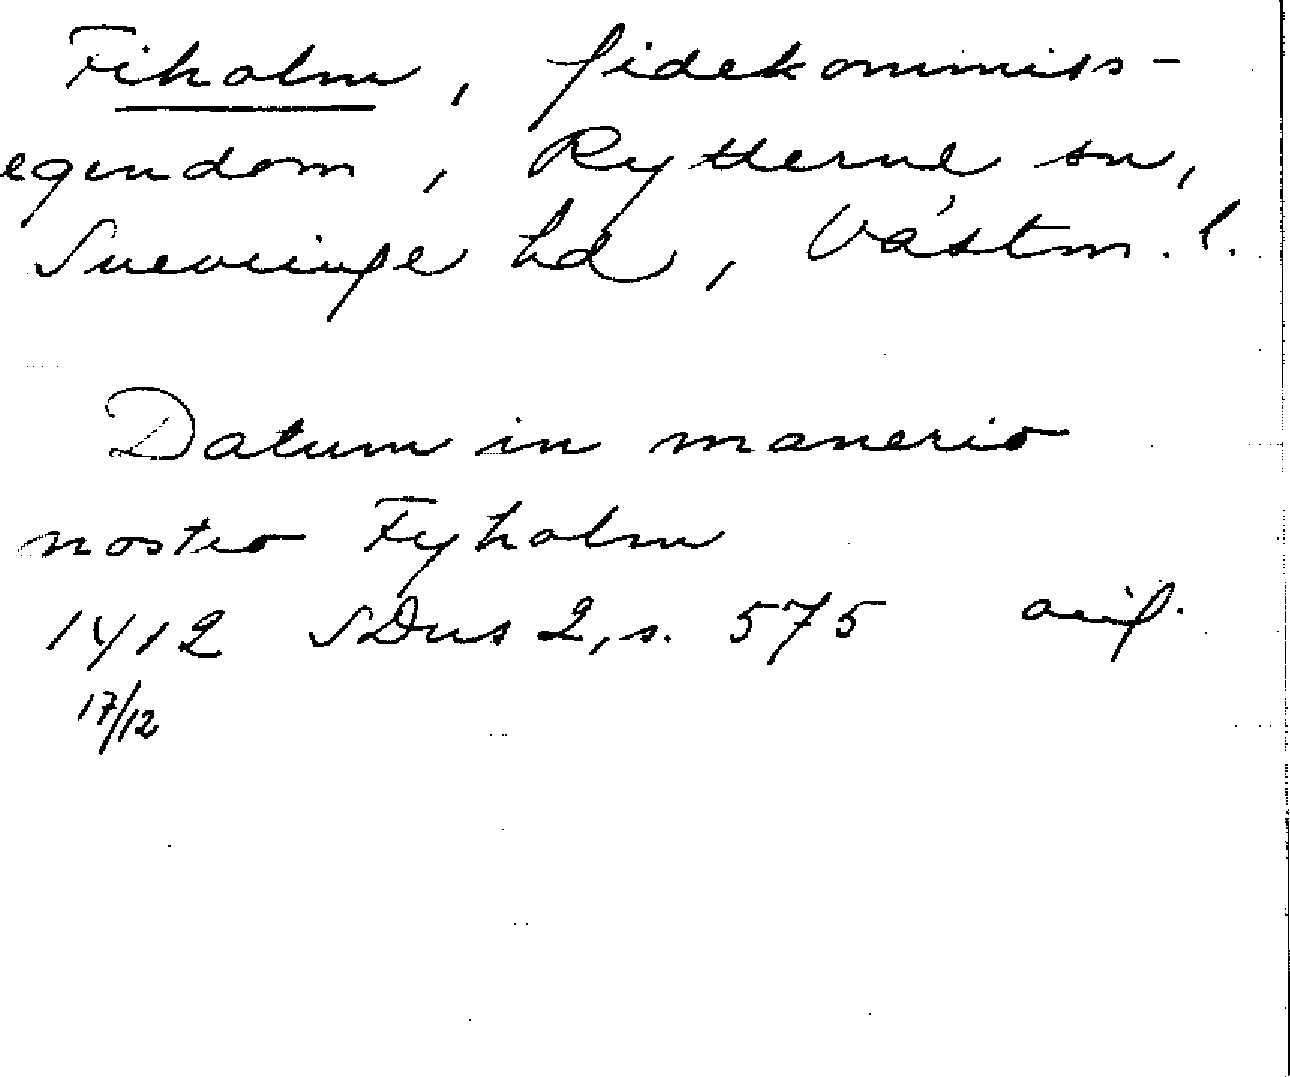 Fiholm, fidekommiss-
egendom, Rytterne sn,
Snevringe hd, Västm. l.
Datum in manerio
nostro Fyholm
1412 SDns 2, s. 575
17/12